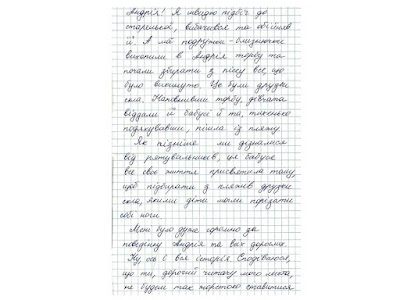 Андрія! Я швидко підбіг до
старенької, вибачився та обійняв
її. А мої подружки-близнючки
вихопили в Андрія торбу та
почали збирати з піску все, що
було викинуто. Це були друзки
скла. Наповнивши торбу, дівчата
віддали її бабусі й та, тихенько
подякувавши, пішла із пляжу.
Як пізніше ми дізналися
від рятувальників, ця бабуся
все своє життя присвятила тому,
щоб підбирати з пляжів друзки
скла, якими діти могли порізати
собі ноги.
Мені було дуже соромно за
поведінку Андрія та всіх дорослих.
Ну ось і вся історія. Сподіваюся,
що ти, дорогий читачу мого листа,
не будеш так жорстоко ставитися